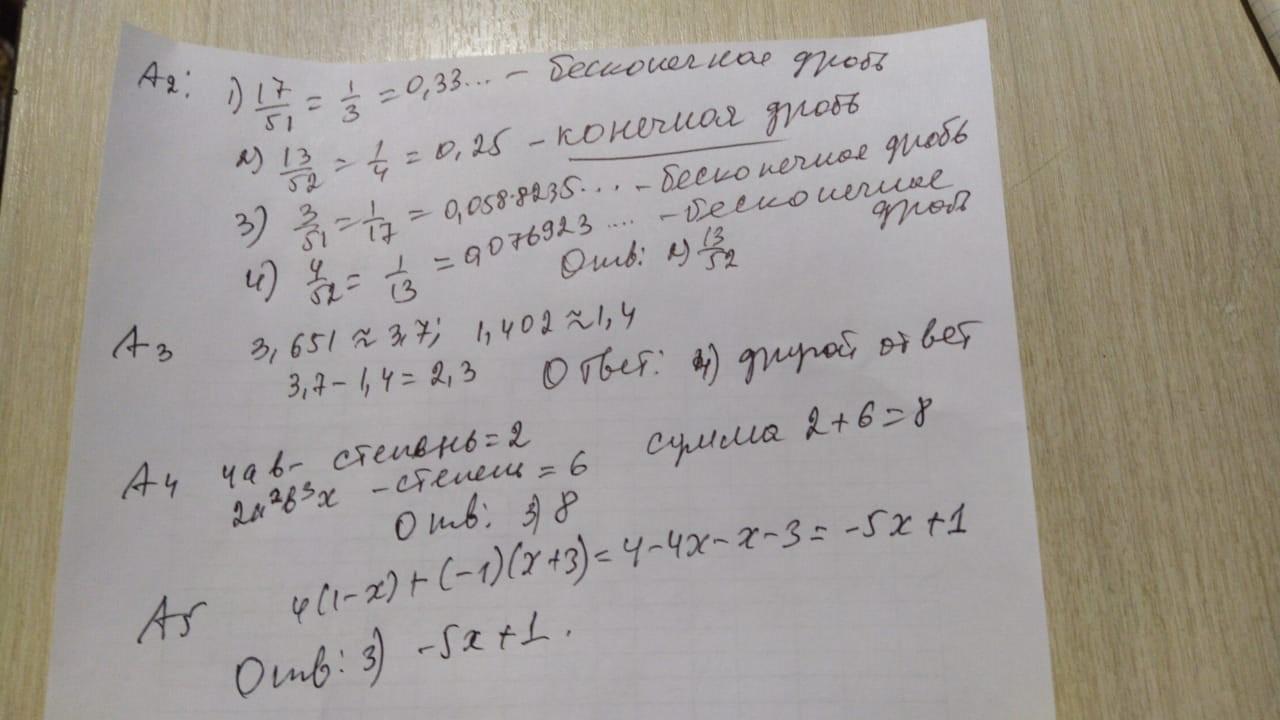 А2: 1) 17/51 = 1/3 = 0,33... – бесконечная дробь
2) 13/52 = 1/4 = 0,25 – конечная дробь
3) 3/51 = 1/17 = 0,0588235... – бесконечная дробь
4) 4/52 = 1/13 = 0,076923.... – бесконечная
дробь
Отв: 2) 13/52
А3 3,651 ≈ 3,7; 1,402 ≈ 1,4
3,7 – 1,4 = 2,3 Ответ: 4) другой ответ
А4 4ав – степень = 2
2а²в³х – степень = 6 сумма 2+6=8
Отв: 3) 8
А5 4(1-х) + (-1)(х+3) = 4-4х-х-3 = -5х+1
Отв: 3) -5х+1.